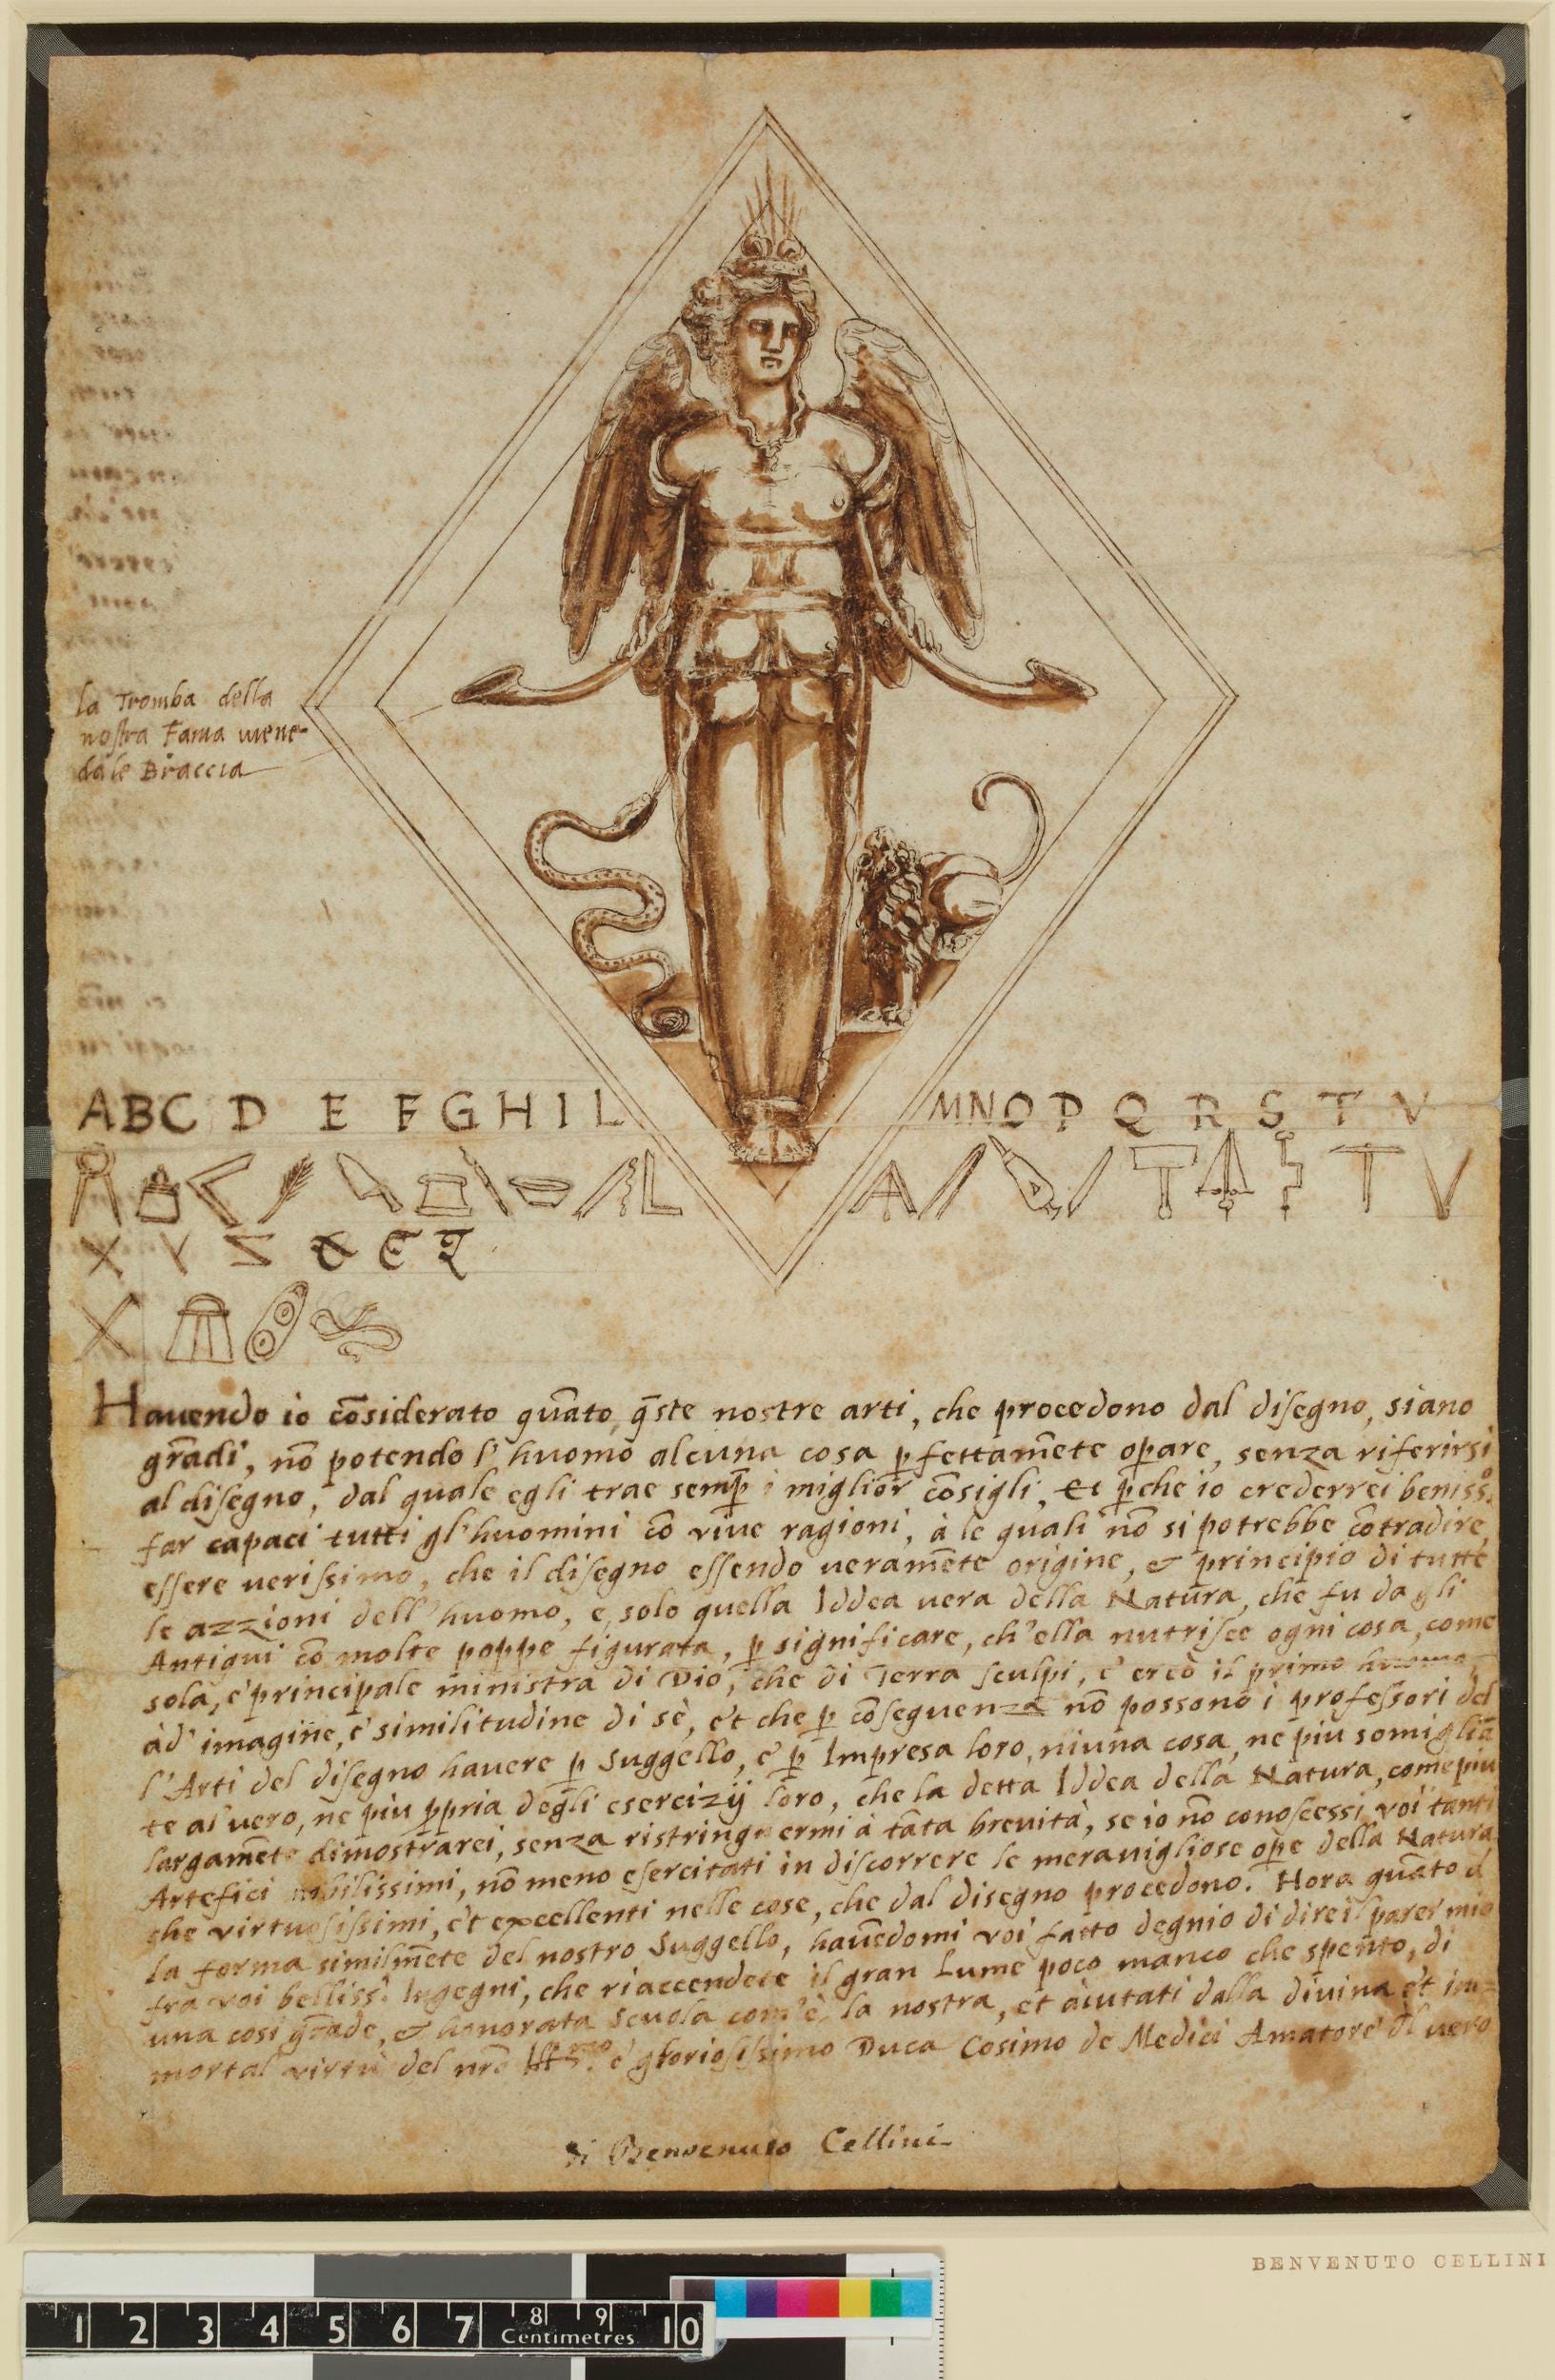 la Tromba della
nostra Fama viene
da le Braccia
A B C D E F G H I L M N O P Q R S T V
X Y Z
Havendo io cõsiderato quãto, q̃ste nostre arti, che procedono dal disegno, siano
grãdi, nõ potendo l'huomo alcuna cosa p̱fettamẽte op̱are, senza riferirsi
al disegno, dal quale egli trae semp̱ i miglior cõsigli, Et p̱che io crederrei beniss.º
far capaci tutti gl'huomini cõ vive ragioni, à le quali nõ si potrebbe cõtradire,
essere verissimo, che il disegno essendo veramẽte origine, & principio di tutte
le azzioni dell'huomo, e solo quella Iddea vera della Natura, che fu da gli
Antiqui cõ molte poppe figurata, p̱ significare, ch'ella nutrisce ogni cosa, come
sola, e' principale ministra di Dio, che di Terra sculpi, e' creò il primo huomo,
àd' imagine, e' similitudine di sè, et che p̱ cõseguenza nõ possono i professori del
l'Arti del disegno havere p̱ Suggello, e' p̱ Impresa loro, niuna cosa, ne piu somigliã
te al vero, ne piu p̱pria degli esercizij loro, che la detta Iddea della Natura, come piu
largamẽte dimostrarei, senza ristringnermi à tãta brevità, se io nõ conoscessi voi tanti
Artefici nobilissimi, nõ meno esercitati in discorrere le meravigliose op̱e della Natura
che virtuosissimi, et excellenti nelle cose, che dal disegno procedono. Hora quãto a
la forma similmẽte del nostro Suggello, havẽdomi voi fatto degnio di dire il parer mio
fra voi belliss.i Ingegni, che riaccendete il gran Lume poco manco che spento, di
una cosi grãde, & honorata Scuola com'è la nostra, et aiutati dalla divina et im=
mortal virtu del nrõ Ill.mo e' gloriosissimo Duca Cosimo de Medici Amatore dl vero
di Benvenuto Cellini
BENVENUTO CELLINI
1 2 3 4 5 6 7 8 9 10
Centimetres